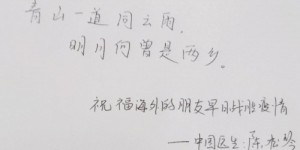 青山一道同云雨，
明月何曾是两乡。
祝福海外的朋友早日战胜疫情
——中国医生：陈